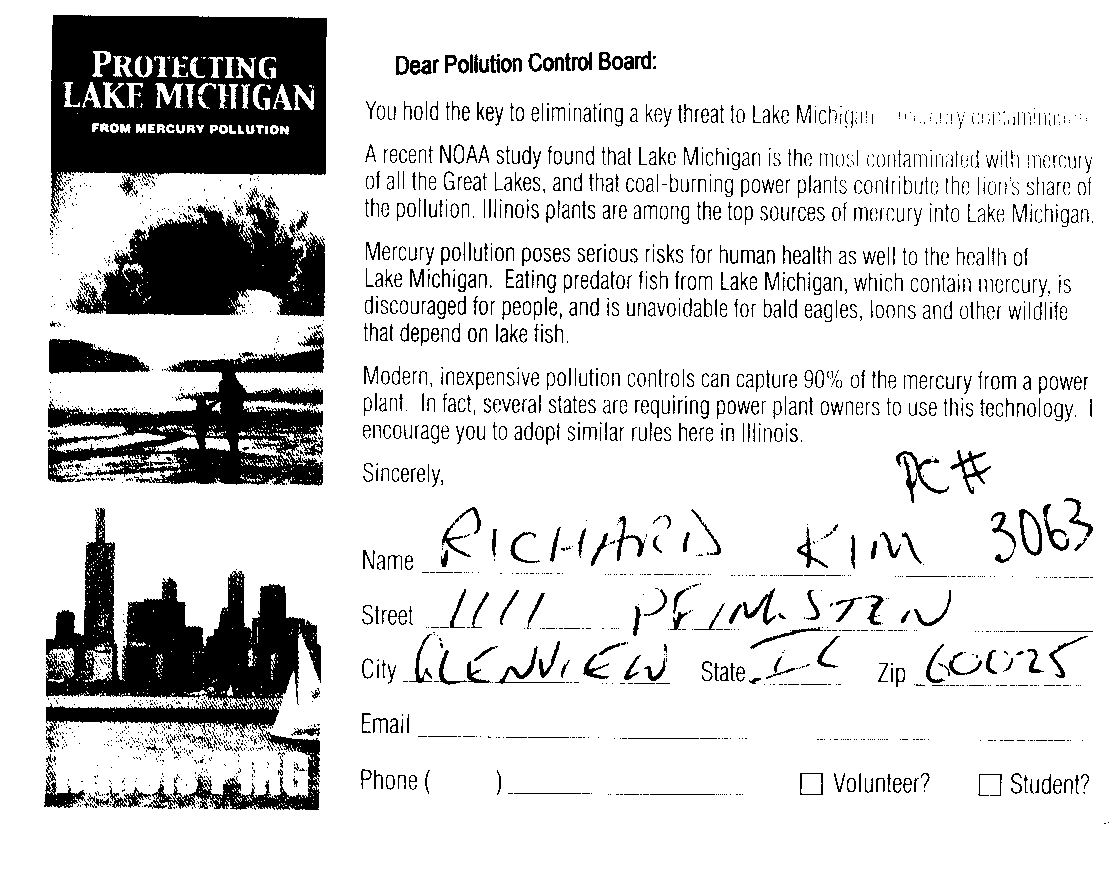 PROTECTING
LAKE MICHIGAN
FROM MERCURY POLLUTION
ILLINOIS PIRG
Dear Pollution Control Board:
You hold the key to eliminating a key threat to Lake Michigan mercury
A recent NOAA study found that Lake Michigan is the most contaminated with mercury
of all the Great Lakes, and that coal-burning power plants contribute the lion's share of
the pollution. Illinois plants are among the top sources of mercury into Lake Michigan.
Mercury pollution poses serious risks for human health as well to the health of
Lake Michigan. Eating predator fish from Lake Michigan, which contain mercury, is
discouraged for people, and is unavoidable for bald eagles, loons and other wildlife
that depend on lake fish.
Modern, inexpensive pollution controls can capture 90% of the mercury from a power
plant. In fact, several states are requiring power plant owners to use this technology. I
encourage you to adopt similar rules here in Illinois.
Sincerely,
PC#
3063
Name RICHARD KIM
Street 1111 PFINGSTEN
City GLENVIEW State IL Zip 60025
Email
Phone ( )
Volunteer? Student?